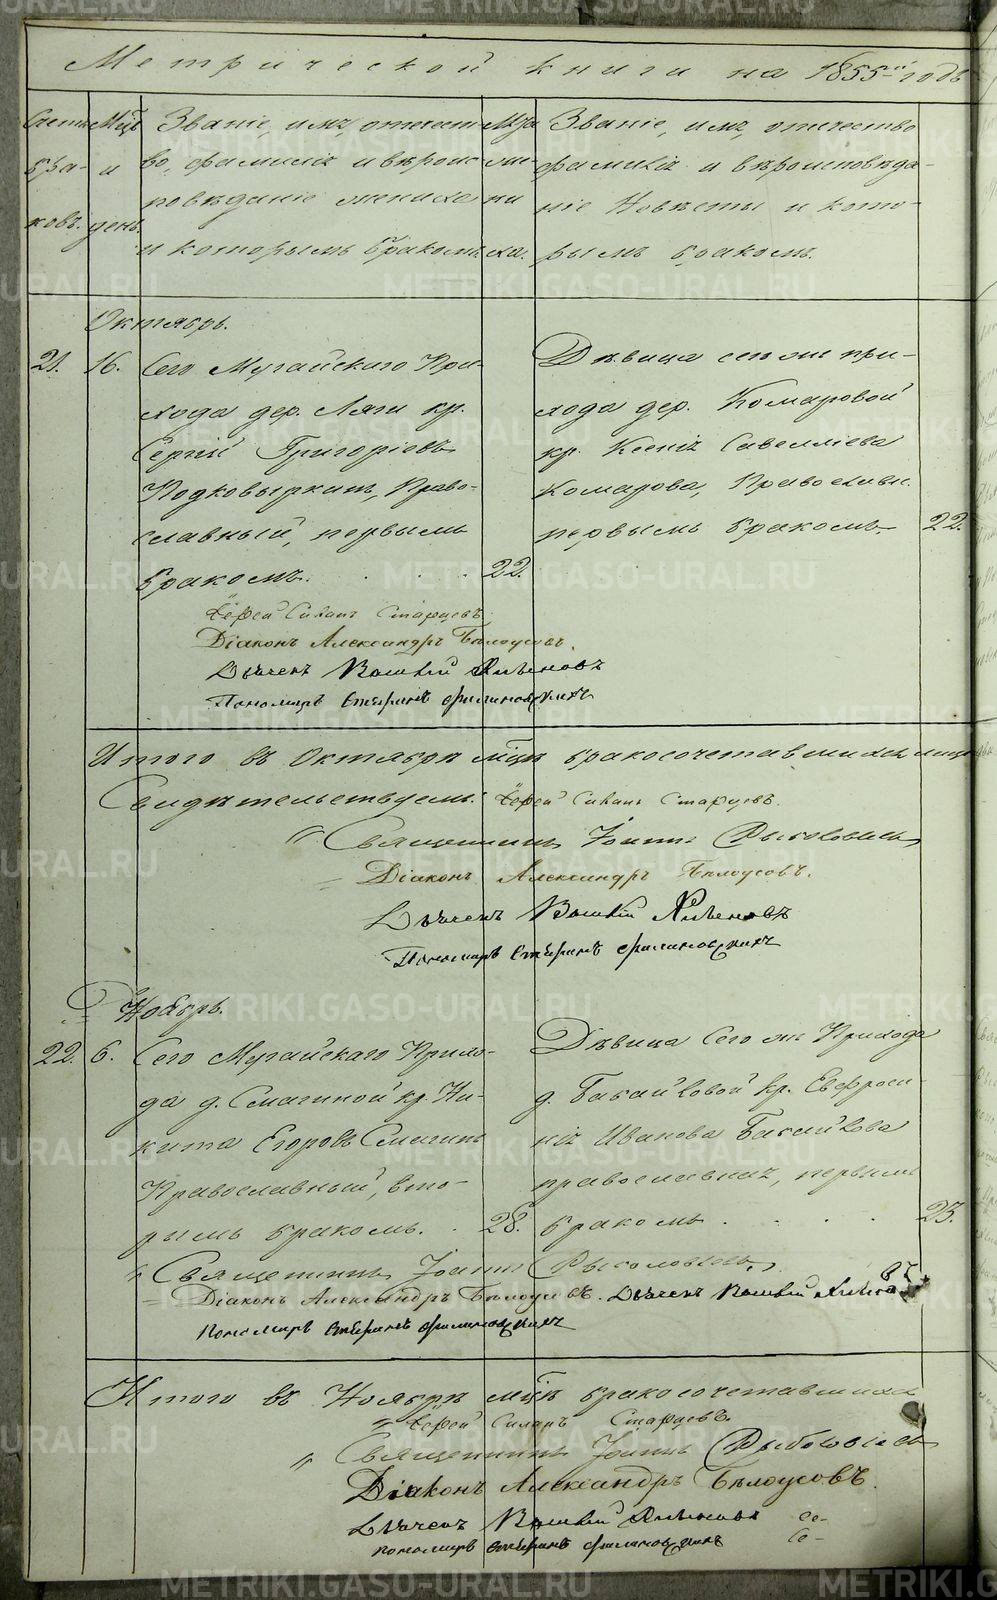 Метрической книги на 1855й годъ
Счетъ бра- ковъ.
Мцъ и день.
Званіе, имя, отечест-
во, фамилія и вѣроис-
повѣданіе жениха
и которымъ бракомъ.
Лѣта же- ни ха.
Званіе, имя, отечество
фамилія и вѣроисповѣда-
ніе Невѣсты и кото-
рымъ бракомъ.
Октябрь.
21. 16. Сего Мугайскаго При-
хода дер. Ляги кр.
Сергій Григоріевъ
Подковыркинъ, Право-
славный, первымъ
бракомъ. . . . 22.
Дѣвица сего же при-
хода дер. Комаровой
кр. Ксенія Савелліева
Комарова, Православн.
первымъ бракомъ. 22.
Іерей Силанъ Старцевъ.
Діаконъ Александръ Бѣлоусовъ.
Дьячекъ
Пономарь
Итого въ Октябрѣ мцѣ бракосочетавшихся
Свидѣтельствуемъ: Іерей Силанъ Старцевъ.
" Священникъ Іоаннъ
Діаконъ Александръ Бѣлоусовъ.
Дьячекъ
Пономарь
Ноябрь.
22. 6. Сего Мугайскаго Прихо-
да д. Смагиной кр. Ни-
кита Егоровъ Смагинъ
Православный, вто-
рымъ бракомъ. . 28.
Дѣвица Сего же Прихода
д. Бакайковой кр. Евфроси-
нія Иванова Бакайкова
православная, первымъ
бракомъ . . . . 23.
" Священникъ Іоаннъ
Діаконъ Александръ Бѣлоусовъ. Дьячекъ
Пономарь
Итого въ Ноябрѣ мцѣ бракосочетавшихся
" Іерей Силанъ Старцевъ.
" Священникъ Іоаннъ
Діаконъ Александръ Бѣлоусовъ.
Дьячекъ
Пономарь
METRIKI.GASO-URAL.RU